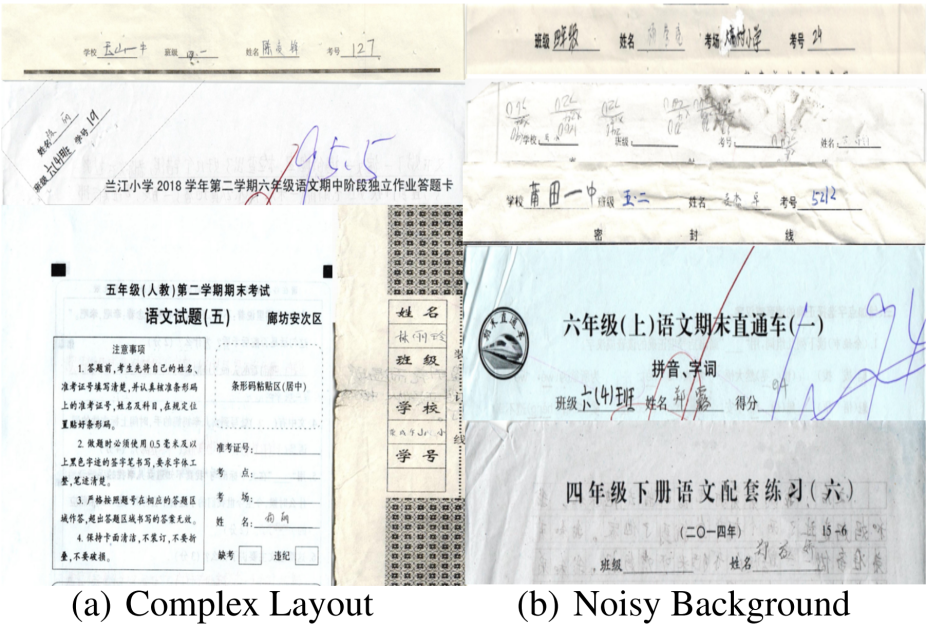 学校 玉山一中 班级 四二 姓名 考号 127
姓名
班级 六(4)班 学号 19
95.5
兰江小学2018学年第二学期六年级语文期中阶段独立作业答题卡
五年级(人教)第二学期期末考试
语文试题(五) 廊坊安次区
注意事项
1.答题前,考生先将自己的姓名,
准考证号填写清楚,并认真核准条形码
上的准考证号,姓名及科目,在规定位
置贴好条形码。
2.做题时必须使用0.5毫米及以
上黑色字迹的签字笔书写,要求字体工
整,笔迹清楚。
3.严格按照题号在相应的答题区
域作答,超出答题区域书写的答案无效。
4.保持卡面清洁,不装订,不要折
叠,不要破损。
条形码粘贴区(居中)
准考证号:
考 点:
考 场:
姓 名:
缺考 违纪
姓名
林雨玲
班级
学校
学号
装
订
线
(a) Complex Layout
班级 四年级 姓名 考场 小学 考号 24
学校: 班级: 考号: 姓名:
学校 莆田一中 班级 五·二 姓名 考号 5212
密 封 线
六年级(上)语文期末直通车(一)
拼音、字词
班级 六(4)班 姓名 郑露 得分
94
四年级下册语文配套练习(六)
(二〇一四年) 15-6
班级 姓名
(b) Noisy Background